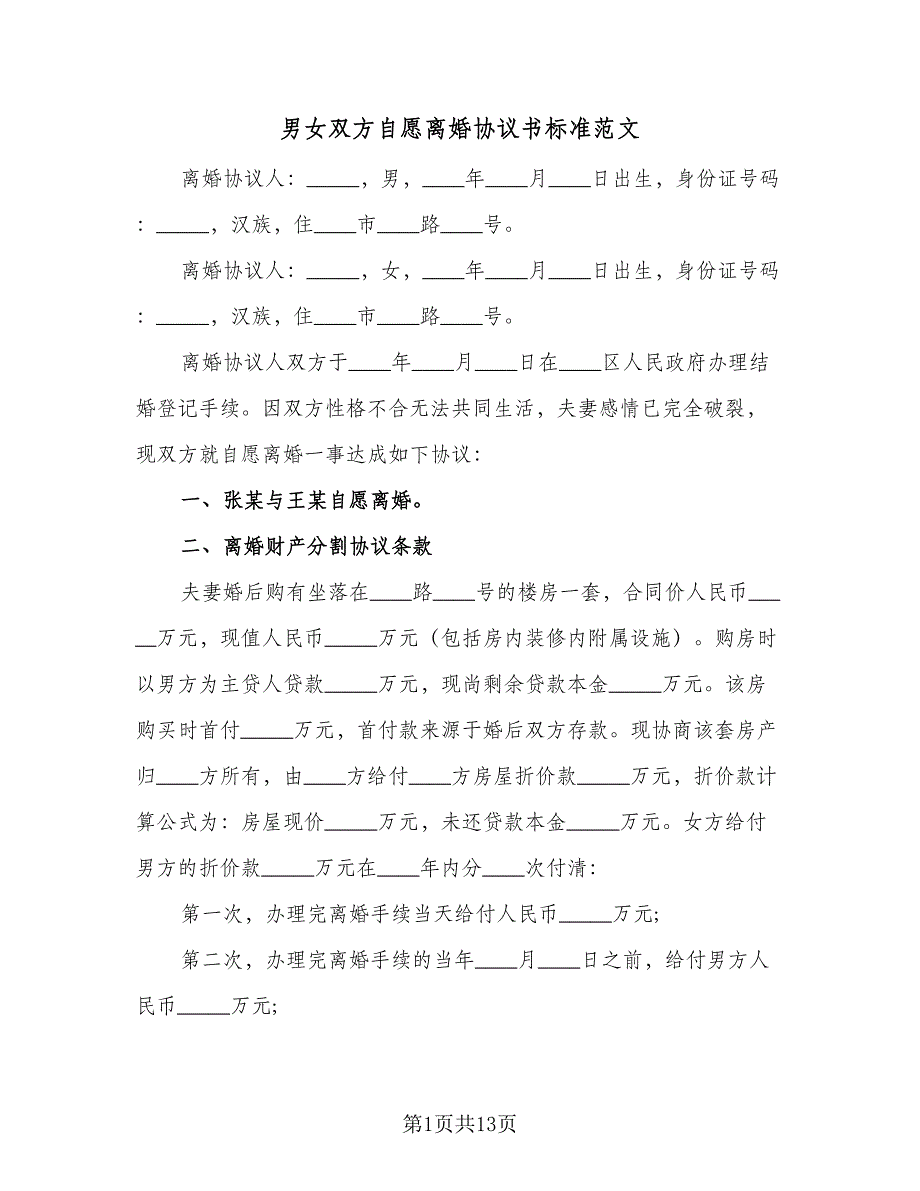 男女双方自愿离婚协议书标准范文
离婚协议人：_____，男，____年____月____日出生，身份证号码
：_____，汉族，住____市____路____号。
离婚协议人：_____，女，____年____月____日出生，身份证号码
：_____，汉族，住____市____路____号。
离婚协议人双方于____年____月____日在____区人民政府办理结
婚登记手续。因双方性格不合无法共同生活，夫妻感情已完全破裂，
现双方就自愿离婚一事达成如下协议：
一、张某与王某自愿离婚。
二、离婚财产分割协议条款
夫妻婚后购有坐落在____路____号的楼房一套，合同价人民币___
__万元，现值人民币_____万元（包括房内装修内附属设施）。购房时
以男方为主贷人贷款_____万元，现尚剩余贷款本金_____万元。该房
购买时首付_____万元，首付款来源于婚后双方存款。现协商该套房产
归____方所有，由____方给付____方房屋折价款_____万元，折价款计
算公式为：房屋现价_____万元，未还贷款本金_____万元。女方给付
男方的折价款_____万元在____年内分____次付清：
第一次，办理完离婚手续当天给付人民币_____万元;
第二次，办理完离婚手续的当年____月____日之前，给付男方人
民币_____万元;
第1页共13页